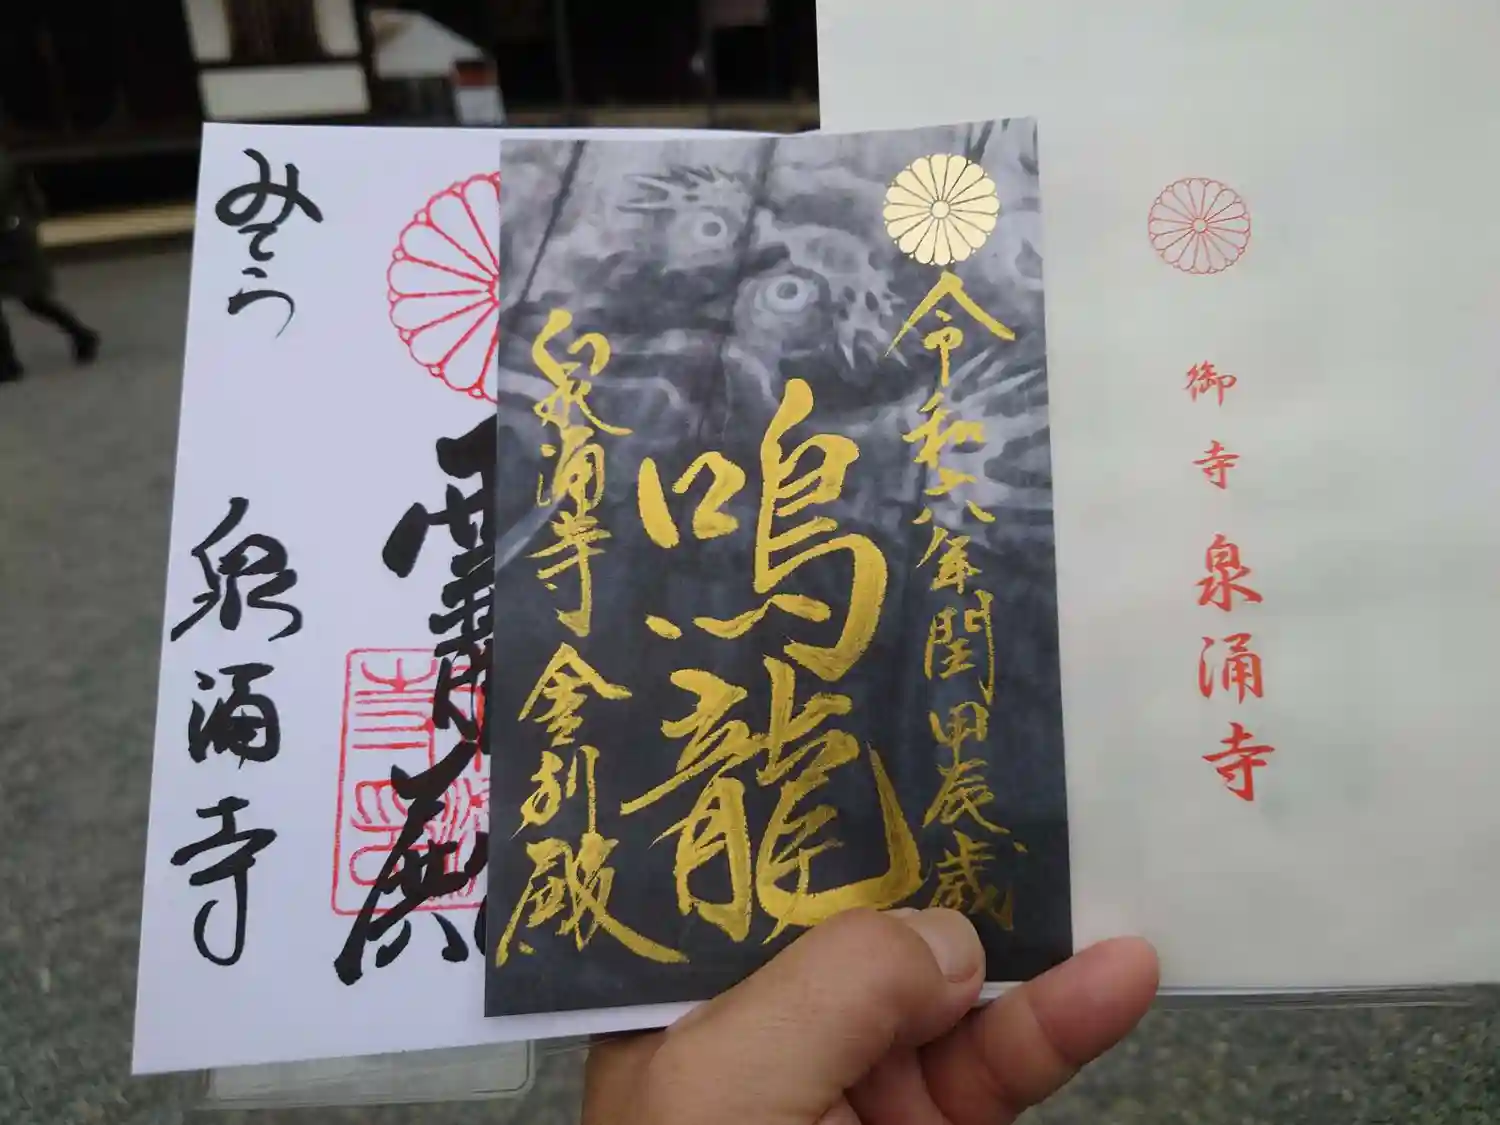 御寺 泉涌寺
令和六年閏甲辰歳
鳴龍
泉涌寺 舎利殿
靈殿
みてら 泉涌寺